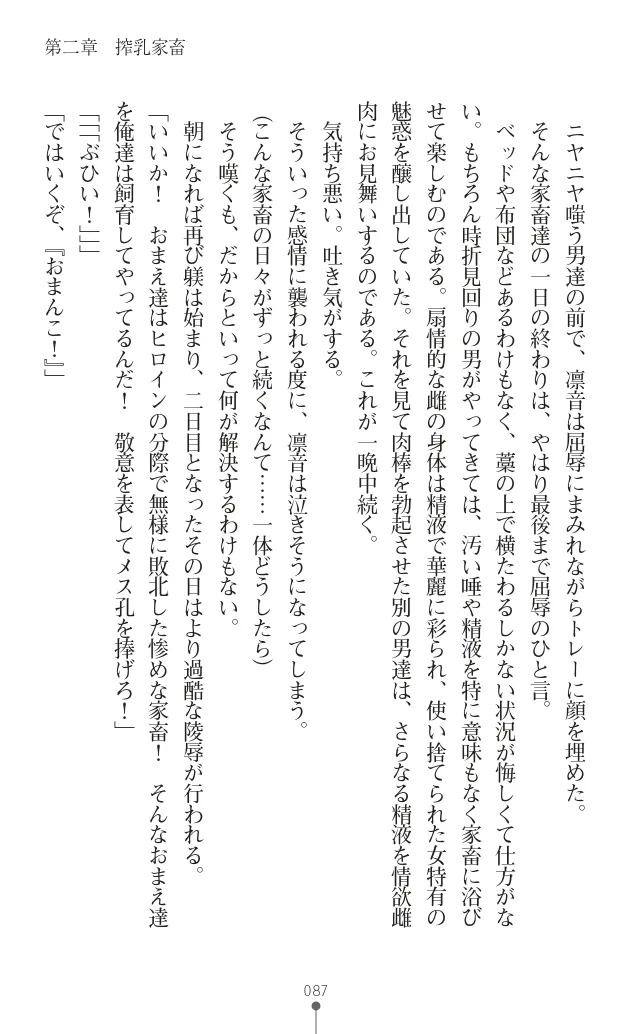 第二章　搾乳家畜
ニヤニヤ嗤う男達の前で、凛音は屈辱にまみれながらトレーに顔を埋めた。
そんな家畜達の一日の終わりは、やはり最後まで屈辱のひと言。
ベッドや布団などあるわけもなく、藁の上で横たわるしかない状況が悔しくて仕方がな
い。もちろん時折見回りの男がやってきては、汚い唾や精液を特に意味もなく家畜に浴び
せて楽しむのである。扇情的な雌の身体は精液で華麗に彩られ、使い捨てられた女特有の
魅惑を醸し出していた。それを見て肉棒を勃起させた別の男達は、さらなる精液を情欲雌
肉にお見舞いするのである。これが一晩中続く。
気持ち悪い。吐き気がする。
そういった感情に襲われる度に、凛音は泣きそうになってしまう。
（こんな家畜の日々がずっと続くなんて……一体どうしたら）
そう嘆くも、だからといって何が解決するわけもない。
朝になれば再び躾は始まり、二日目となったその日はより過酷な陵辱が行われる。
「いいか！　おまえ達はヒロインの分際で無様に敗北した惨めな家畜！　そんなおまえ達
を俺達は飼育してやってるんだ！　敬意を表してメス孔を捧げろ！」
「「「ぶひい！」」」
「ではいくぞ、『おまんこ！』」
087